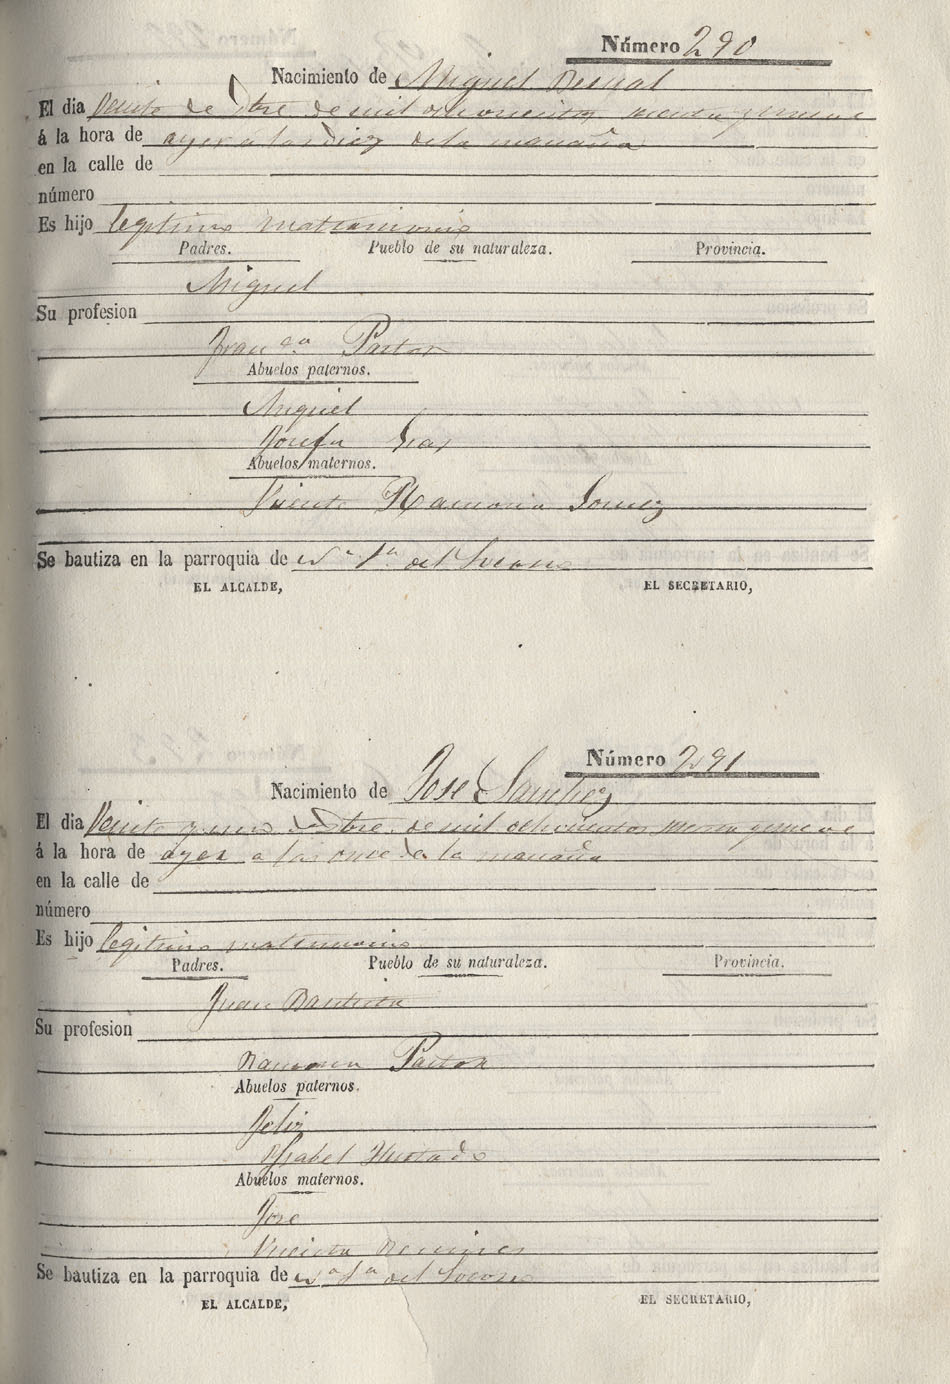 Número 290
Nacimiento de Miguel Bernal
El dia Veinte de Obre de mil ochocientos sesenta y nueve
á la hora de ayer a las diez de la mañana
en la calle de
número
Es hijo legitimo matrimonio
Padres. Pueblo de su naturaleza. Provincia.
Miguel
Su profesion
Fran.ca Pastor
Abuelos paternos.
Miguel
Josefa
Abuelos maternos.
Vicente Ramona Gomez
Se bautiza en la parroquia de N.a S.a del Socorro
EL ALCALDE, EL SECRETARIO,
Número 291
Nacimiento de Jose Sanchez
El dia Veinte y uno Obre de mil ochocientos sesenta y nueve
á la hora de ayer a las once de la mañana
en la calle de
número
Es hijo legitimo matrimonio
Padres. Pueblo de su naturaleza. Provincia.
Juan Bautista
Su profesion
Ramona Pastor
Abuelos paternos.
Feliz
Ysabel Hurtado
Abuelos maternos.
Jose
Vicenta Ramires
Se bautiza en la parroquia de N.a S.a del Socorro
EL ALCALDE, EL SECRETARIO,